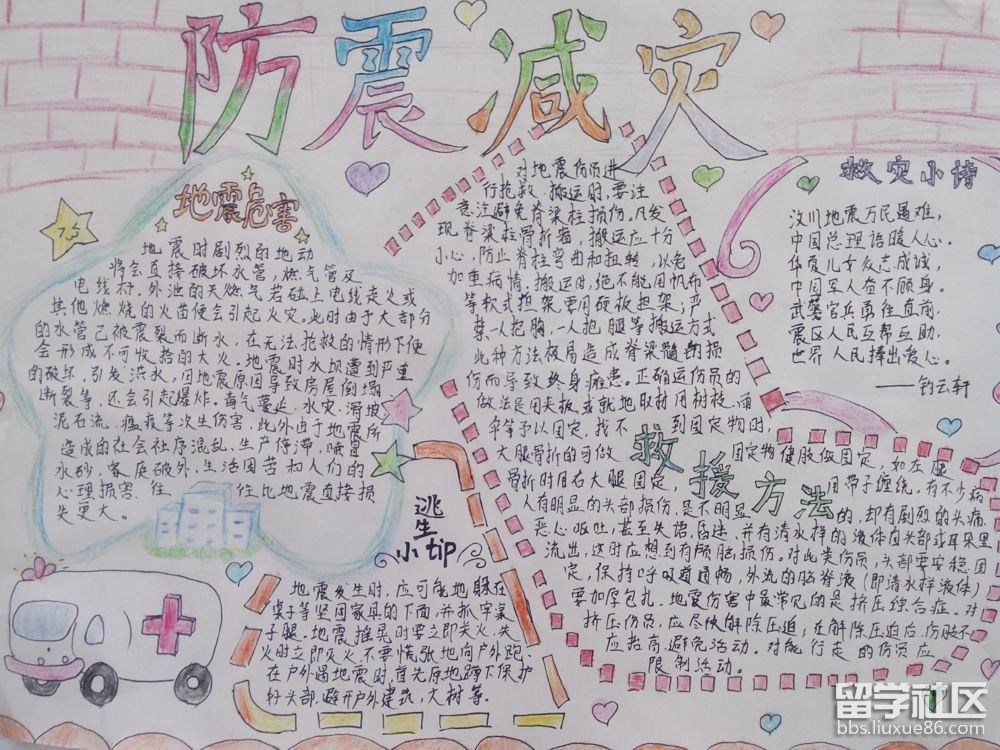 防震减灾
地震危害
7.5
地震时剧烈的地动
将会直接破坏水管，燃气管及
电线杆，外泄的天燃气若碰上电线走火或
其他燃烧的火苗便会引起火灾。此时由于大部分
的水管已被震裂而断水，在无法抢救的情形下便
会形成不可收拾的大火。地震时水坝遭到严重
的破坏，引发洪水，因地震原因导致房屋倒塌
断裂等，还会引起爆炸。毒气蔓延，水灾，滑坡
泥石流，瘟疫等次生伤害，此外由于地震所
造成的社会社序混乱，生产停滞，喷冒
水砂，家庭破外，生活困苦和人们的
心理损害，往往比地震直接损
失更大。
对地震伤员进
行抢救，搬运时，要注
意注避免脊梁柱损伤，凡发
现脊梁柱骨折者，搬运应十分
小心，防止脊柱弯曲和扭转，以免
加重病情，搬运时，绝不能用帆布
等软式担架要用硬板担架；严
禁一人抱胸，一人抱腿等搬运方式
此种方法极易造成脊梁髓的损
伤而导致终身瘫患。正确运伤员的
做法是用夹板或就地取材用树枝、雨
伞等予以固定，找不到固定物时，
大腿骨折的可做固定物健肢做固定，如左腿
骨折时用右大腿固定，用带子缠绕，有不少病
人有明显的头部损伤，是不明显的，却有剧烈的头痛，
恶心呕吐，甚至失语、昏迷，并有清水样的液体自头部或耳朵里
流出，这时应想到有颅脑损伤。对此类伤员，头部要安稳固
定，保持呼吸道通畅，外流的脑脊液（即清水样液体）
要加厚包扎。地震伤害中最常见的是挤压综合症。对
挤压伤员，应尽快解除压迫，在解除压迫后，伤肢不
应抬高，避免活动。对能行走的伤员应
限制活动。
救援方法
救灾小诗
汶川地震万民遇难，
中国总理语暖人心。
华夏儿女众志成诚，
中国军人奋不顾身。
武警官兵勇往直前，
震区人民互帮互助，
世界人民捧出爱心。
逃生
小tip
地震发生时，应可能地躲在
桌子等坚固家具的下面，并抓牢桌
子腿。地震摇晃时要立即关火，失
火时立即灭火，不要慌张地向户外跑。
在户外遇地震时，首先原地蹲下保护
好头部，避开户外建筑，大树等。
留学社区
bbs.liuxue86.com